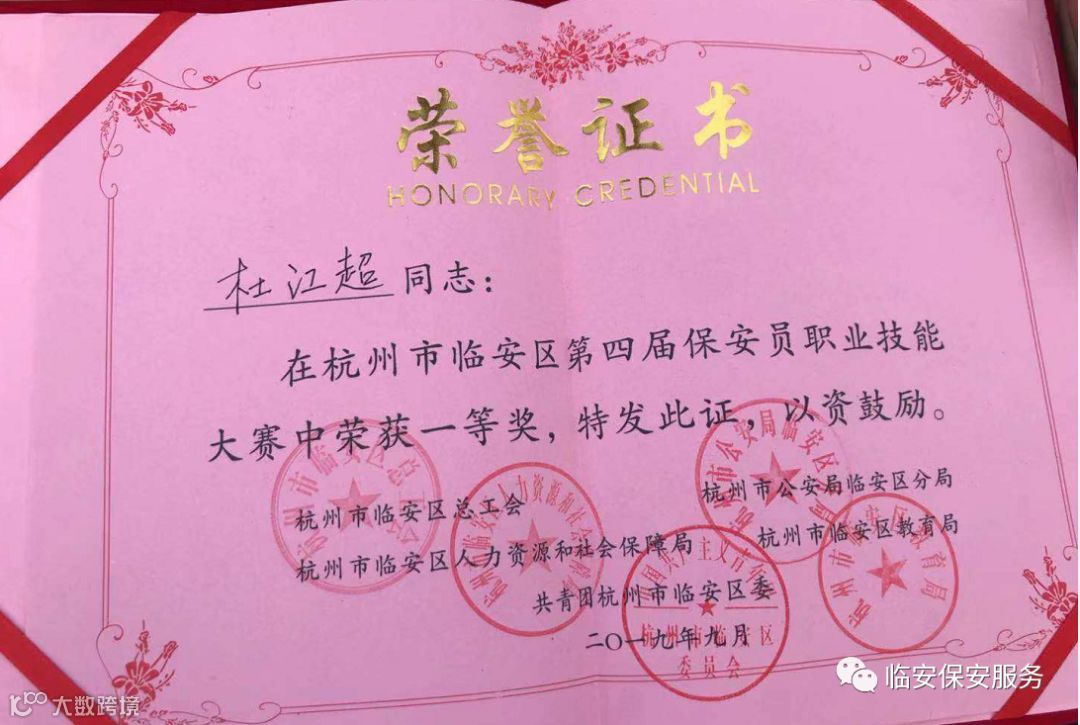 荣誉证书
HONORARY CREDENTIAL
杜江超同志：
在杭州市临安区第四届保安员职业技能
大赛中荣获一等奖，特发此证，以资鼓励。
杭州市临安区总工会
杭州市公安局临安区分局
杭州市临安区人力资源和社会保障局
杭州市临安区教育局
共青团杭州市临安区委
二〇一九年九月
杭州市临安区
委员会
临安保安服务
大数跨境